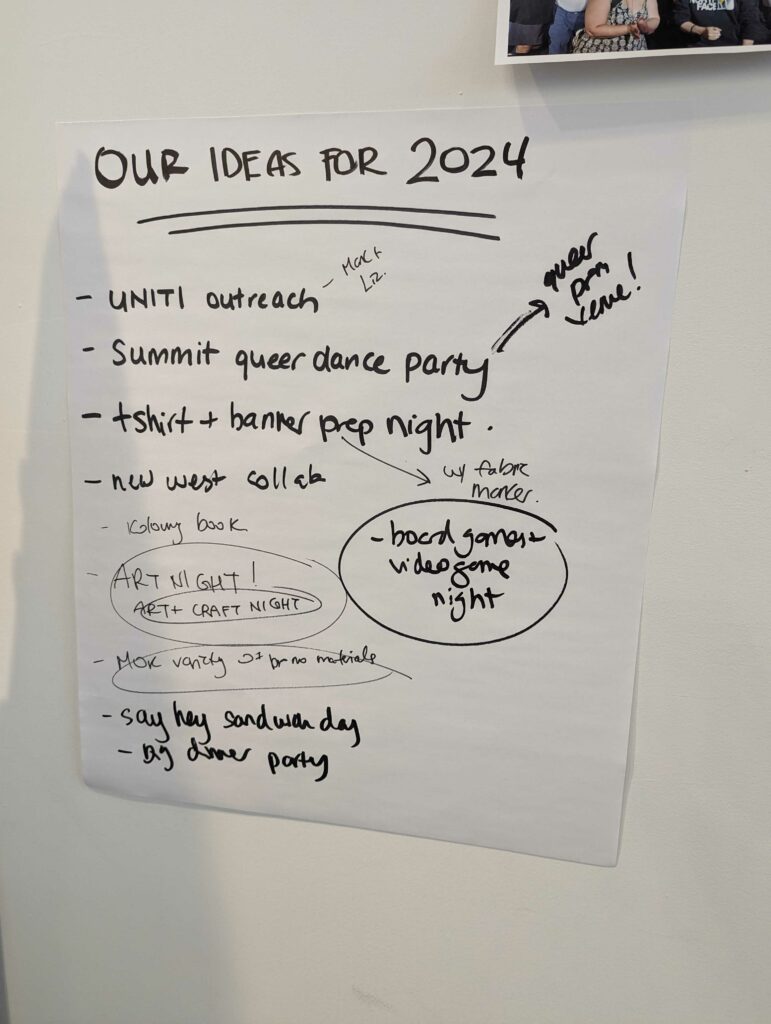 OUR IDEAS FOR 2024
- UNITI outreach
- Max +
Liz.
- Summit queer dance party
queer
prom
venue!
- tshirt + banner prep night.
w/ fabric
marker.
- new west collab
- board games +
video game
night
book
- ART NIGHT!
ART + CRAFT NIGHT
- variety materials
- say hey sandwich day
- big dinner party